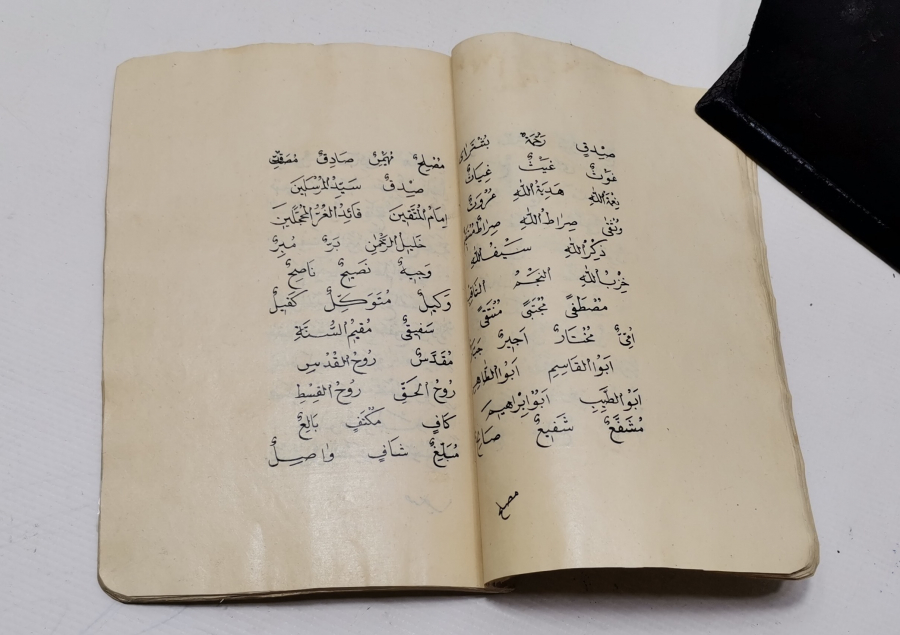 صِدْقٍ رَحْمَةٌ بُشْرَى
غَوْثٌ غَيْثٌ غِيَاثٌ
نِعْمَةُ اللهِ هَدِيَّةُ اللهِ عُرْوَةٌ
وُثْقَى صِرَاطُ اللهِ صِرَاطٌ مُسْتَقِيمٌ
ذِكْرُ اللهِ سَيْفُ اللهِ
حِزْبُ اللهِ النَّجْمُ الثَّاقِبُ
مُصْطَفًى مُجْتَبًى مُنْتَقًى
اُمِّيٌّ مُخْتَارٌ اَجِيرٌ
اَبُو الْقَاسِمِ اَبُو الطَّاهِرِ
اَبُو الطَّيِّبِ اَبُو اِبْرَاهِيمَ
مُشَفَّعٌ شَفِيعٌ صَالِحٌ
مصلح
مُصْلِحٌ مُهَيْمِنٌ صَادِقٌ مُصَدِّقٌ
صِدْقٌ سَيِّدُ الْمُرْسَلِينَ
اِمَامُ الْمُتَّقِينَ قَائِدُ الْغُرِّ الْمُحَجَّلِينَ
خَلِيلُ الرَّحْمٰنِ بَرٌّ مُبِرٌّ
وَجِيهٌ نَصِيحٌ نَاصِحٌ
وَكِيلٌ مُتَوَكِّلٌ كَفِيلٌ
شَفِيقٌ مُقِيمُ السُّنَّةِ
مُقَدَّسٌ رُوحُ الْقُدُسِ
رُوحُ الْحَقِّ رُوحُ الْقِسْطِ
كَافٍ مُكْتَفٍ بَالِغٌ
مُبَلِّغٌ شَافٍ وَاصِلٌ